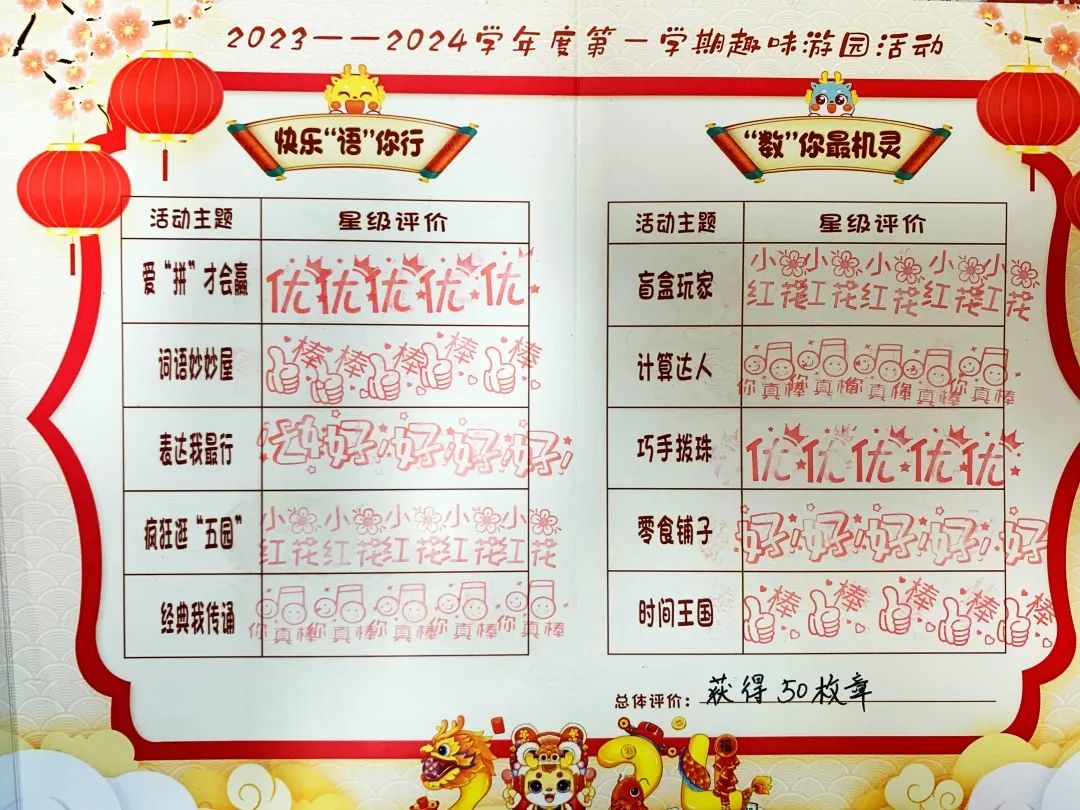 2023——2024学年度第一学期趣味游园活动
快乐“语”你行
活动主题 星级评价
爱“拼”才会赢 优 优 优 优 优
词语妙妙屋 棒 棒 棒 棒 棒
表达我最行 好! 好! 好! 好! 好!
疯狂逛“五园” 小红花 小红花 小红花 小红花 小红花
经典我传诵 你真棒 你真棒 你真棒 你真棒 你真棒
“数”你最机灵
活动主题 星级评价
盲盒玩家 小红花 小红花 小红花 小红花 小红花
计算达人 你真棒 你真棒 你真棒 你真棒 你真棒
巧手拨珠 优 优 优 优 优
零食铺子 好! 好! 好! 好! 好!
时间王国 棒 棒 棒 棒 棒
总体评价: 获得50枚章
福